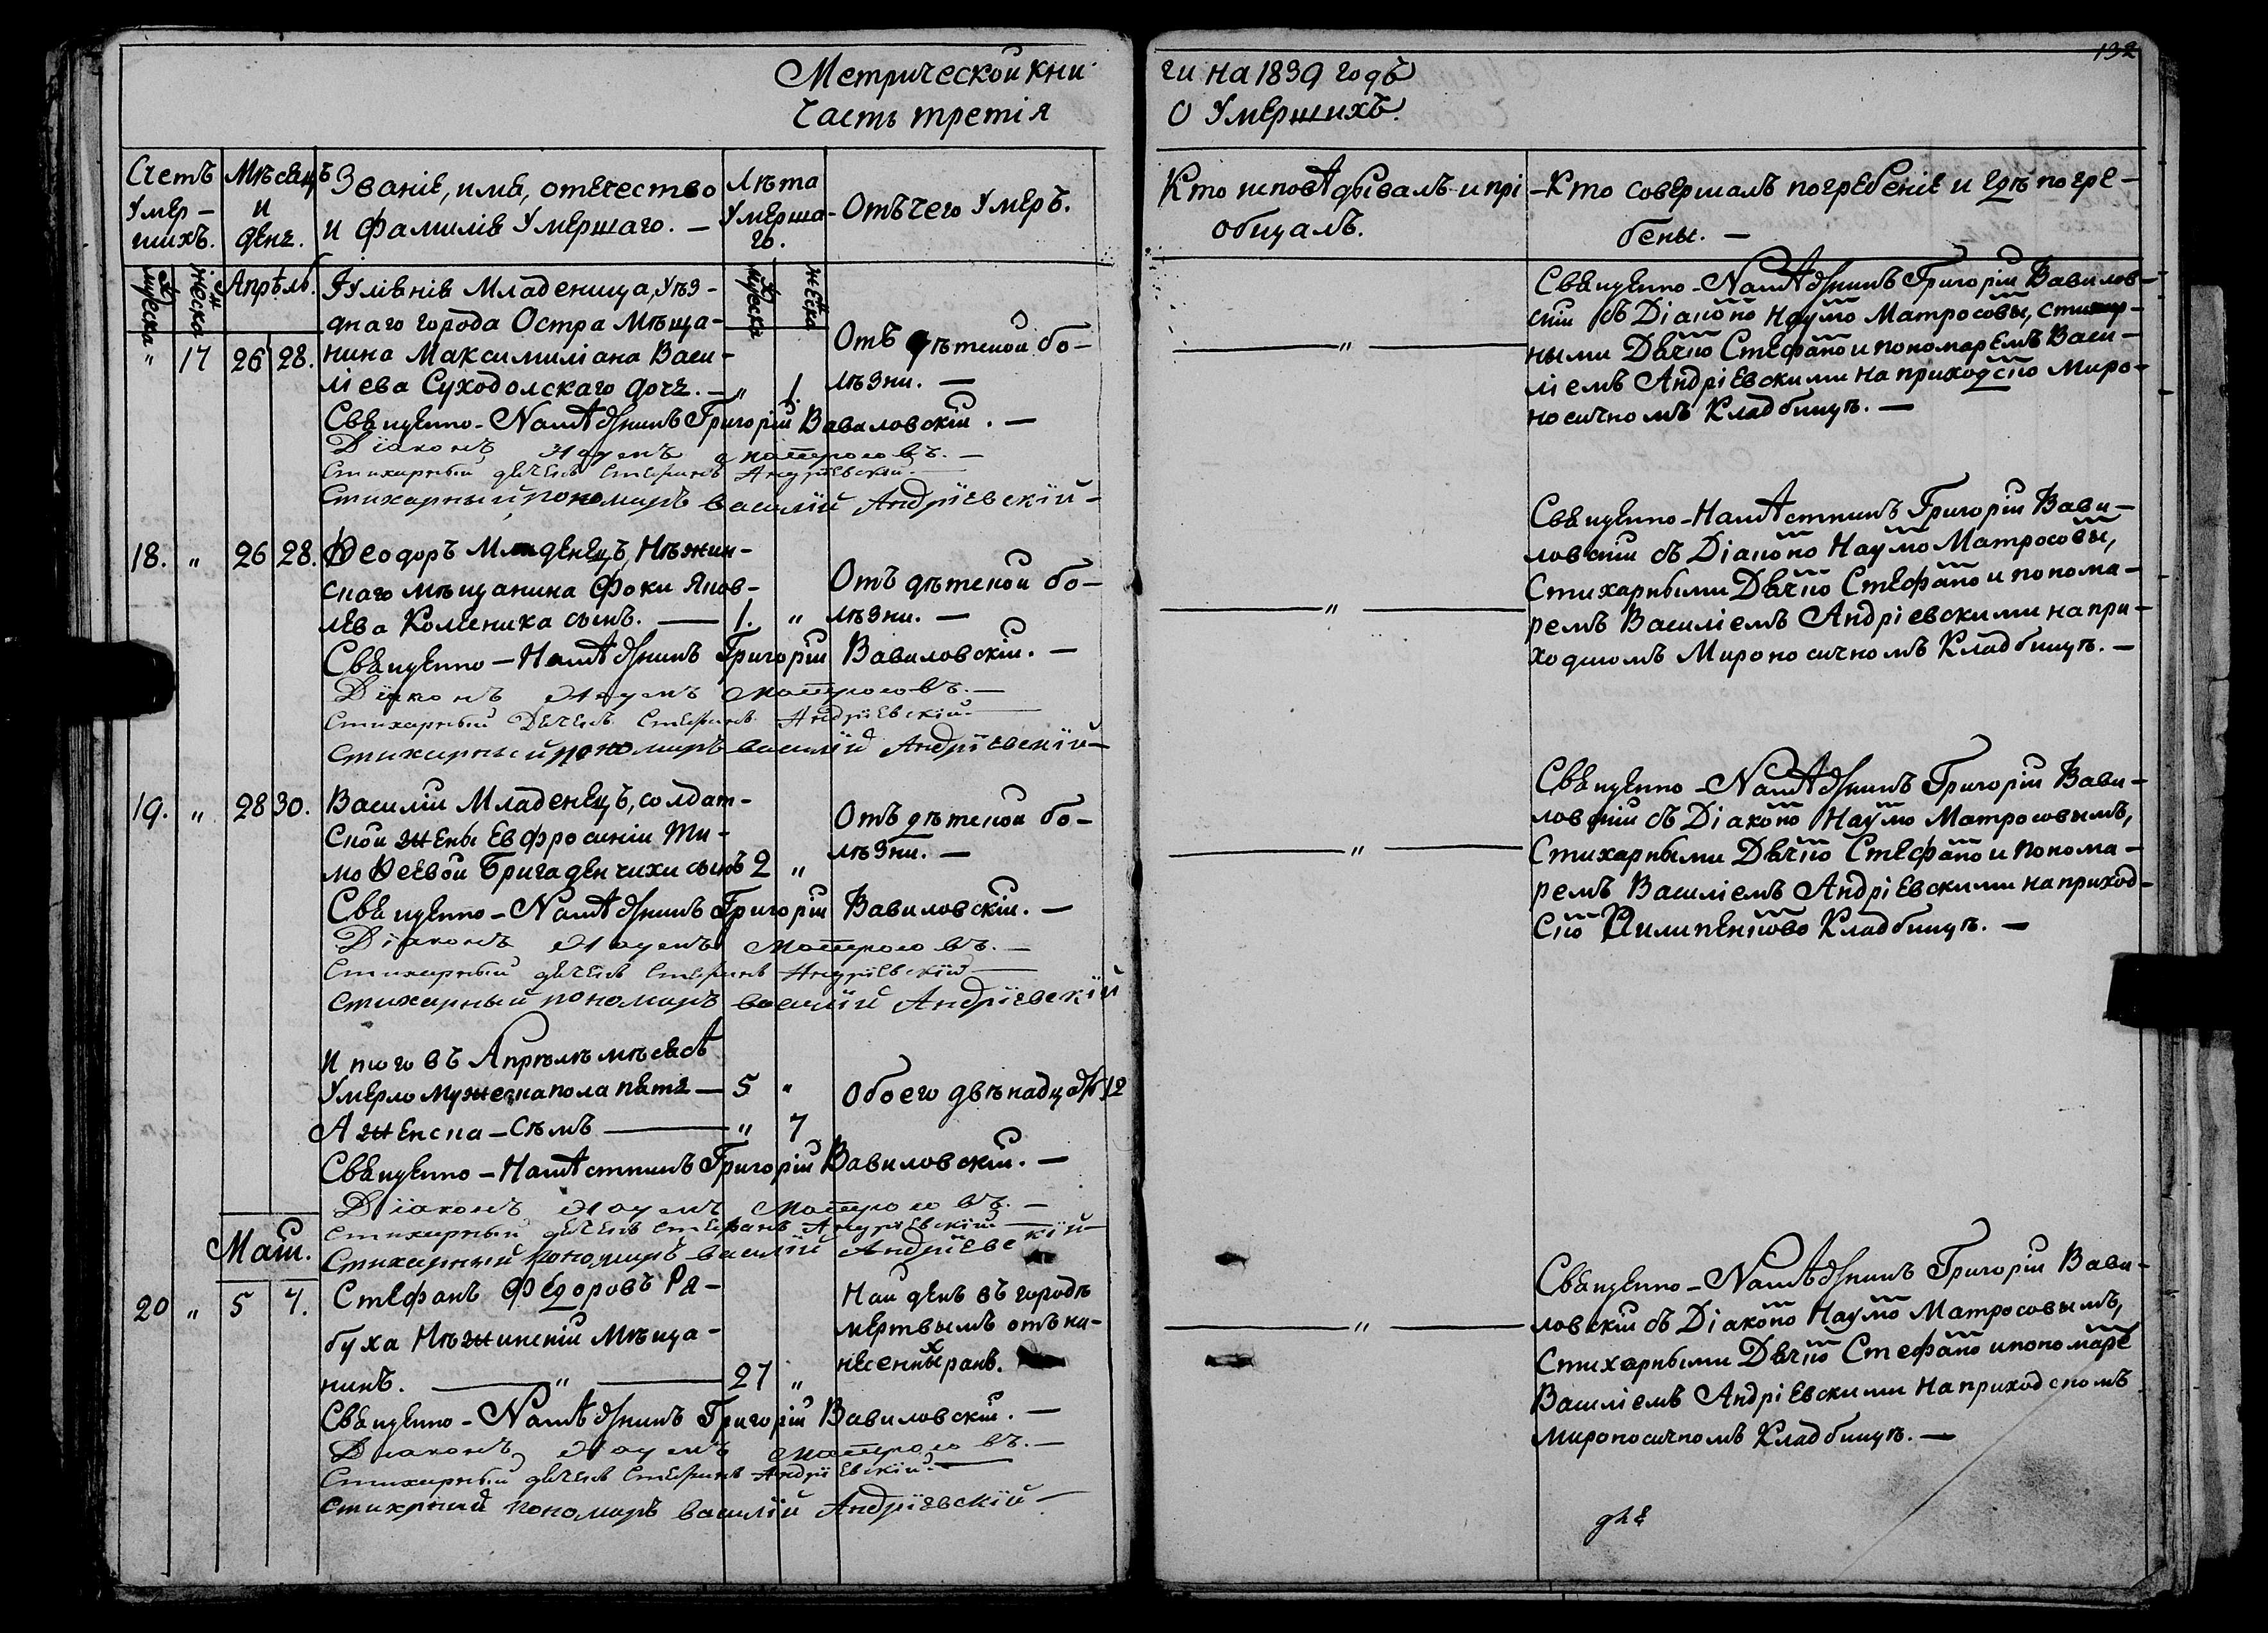 132
Метрической кни
Часть третія
ги на 1839 годъ
О Умершихъ.
Счетъ Умер-шихъ.
Мѣсяцъ и день.
Званіе, имя, отечество
и фамилія Умершаго. —
Лѣта Умерша-го.
Отъ чего Умеръ.
Кто исповѣдывалъ и прі
общалъ.
Кто совершалъ погребеніе и гдѣ погре-
бены. —
мужеска
женска
Апрѣль.
мужеска
женска
Іуліянія Младеница, уѣз-
днаго города Остра Мѣща-
" 17 26 28. нина Максимиліана Васи-
ліева Суходолскаго дочь. — " 1.
Отъ дѣтской бо-
лѣзни. —
Священно-Намѣстникъ Григорій Вавиловскій. —
Діаконъ Наумъ Матросовъ. —
Стихарный дячекъ Стефанъ Андріевскій. —
Стихарный пономарь Василій Андріевскій —
— " —
Священно-Намѣстникъ Григорій Вавилов-
скій съ Діаконо Наумо Матросовы, стихар-
ными Дячко Стефано и пономаремъ Васи-
ліемъ Андріевскими на приходско Миро-
носичномъ Кладбищѣ. —
18. " 26 28. Ѳеодоръ Младенецъ, Нѣжин-
скаго мѣщанина Фоки Яков-
лева Коменика сынъ. — 1. "
Отъ дѣтской бо-
лѣзни. —
Священно-Намѣстникъ Григорій Вавиловскій. —
Діаконъ Наумъ Матросовъ. —
Стихарный Дячекъ Стефанъ Андріевскій —
Стихарный пономарь Василій Андріевскій —
— " —
Священно-Намѣстникъ Григорій Вави-
ловскій съ Діаконо Наумо Матросовы,
Стихарными Дячко Стефано и понома-
ремъ Василіемъ Андріевскими на при-
ходскомъ Мироносичномъ Кладбищѣ. —
19. " 28 30. Василій Младенецъ, солдат-
ской жены Евфросиніи Ти-
моѳеевой Бригаденчихи сынъ 2 "
Отъ дѣтской бо-
лѣзни. —
Священно-Намѣстникъ Григорій Вавиловскій. —
Діаконъ Наумъ Матросовъ. —
Стихарный дячекъ Стефанъ Андріевскій —
Стихарный пономарь Василій Андріевскій
— " —
Священно-Намѣстникъ Григорій Вави-
ловскій съ Діаконо Наумо Матросовымъ,
Стихарными Дячко Стефано и понома-
ремъ Василіемъ Андріевскими на приход-
ско Пилипенково Кладбищѣ. —
Итого въ Апрѣлѣ мѣсяцѣ
Умерло мужеска пола пять — 5 "
А женска — Семъ — " 7
Обоего двѣнадцать 12
Священно-Намѣстникъ Григорій Вавиловскій. —
Діаконъ Наумъ Матросовъ. —
Стихарный дячекъ Стефанъ Андріевскій —
Стихарный пономарь Василій Андріевскій —
Маій.
20 " 5 7. Стефанъ Федоровъ Ря-
буха Нѣжинскій Мѣща-
нинъ. — " — 27 "
Найденъ въ городѣ
мертвымъ отъ на-
несенныхъ ранъ.
Священно-Намѣстникъ Григорій Вавиловскій. —
Діаконъ Наумъ Матросовъ. —
Стихарный дячекъ Стефанъ Андріевскій. —
Стихрный пономарь Василій Андріевскій —
— " —
Священно-Намѣстникъ Григорій Вави-
ловскій съ Діаконо Наумо Матросовымъ,
Стихарными Дячко Стефано и пономаре
Василіемъ Андріевскими на приходскомъ
мироносичномъ Кладбищѣ. —